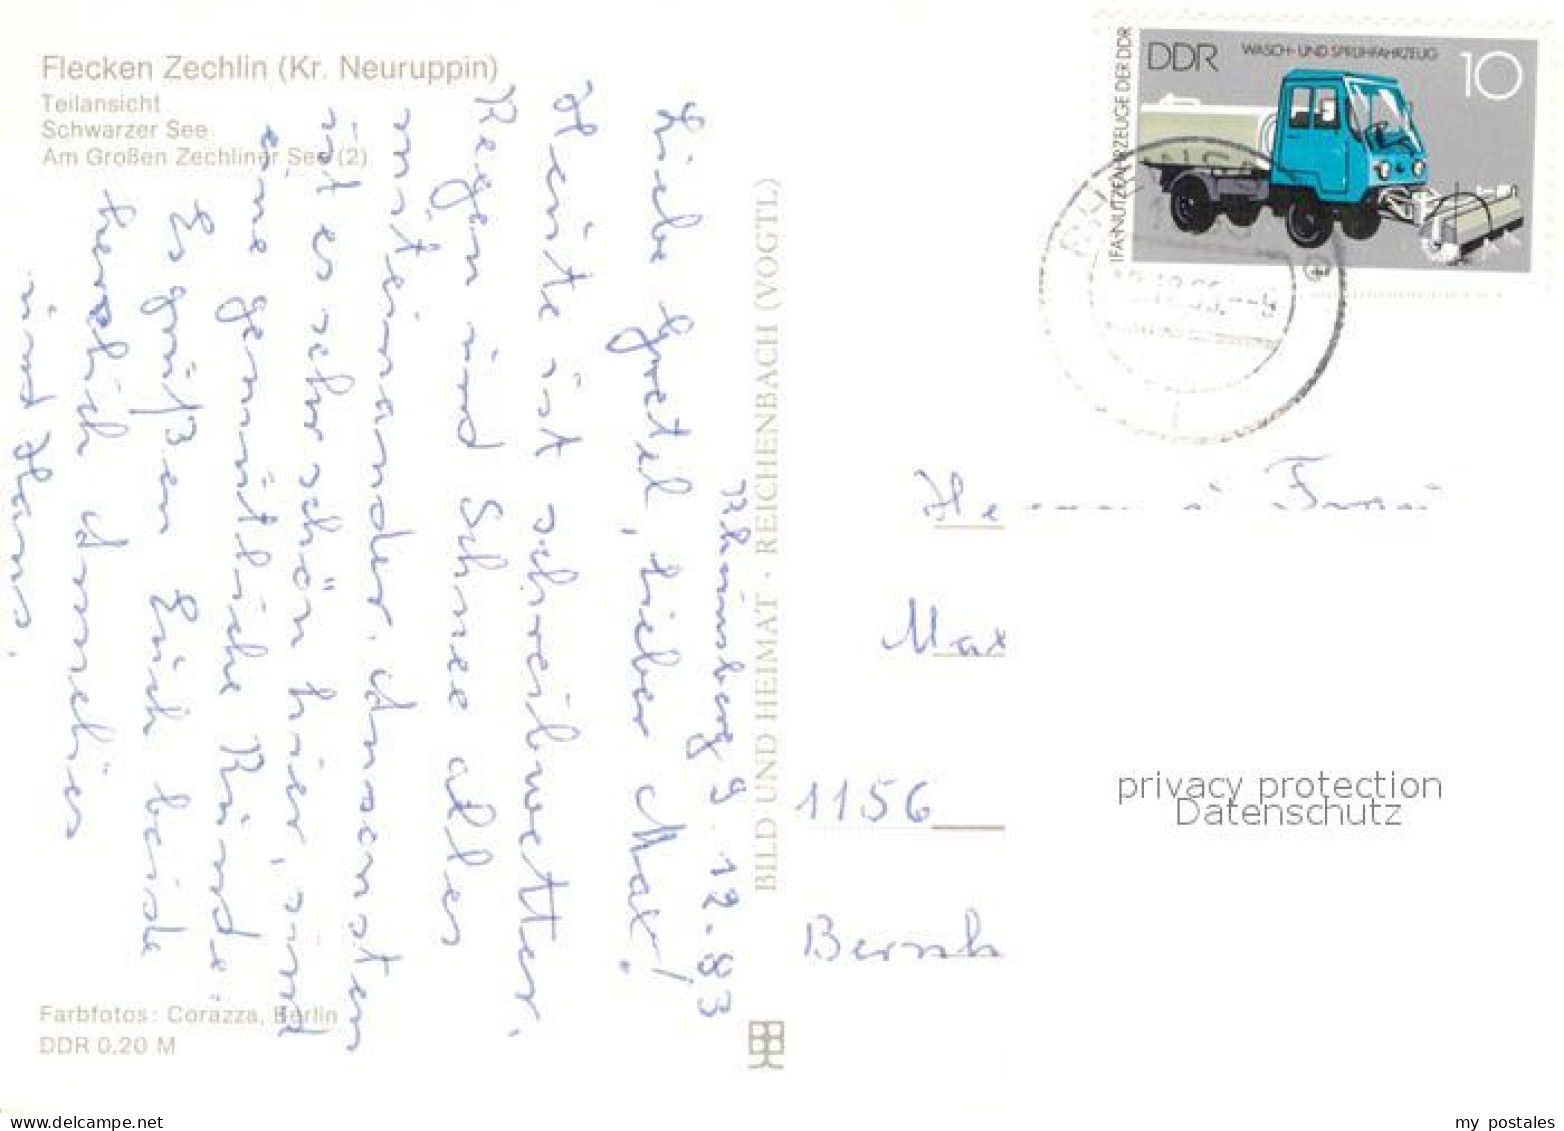 Flecken Zechlin (Kr. Neuruppin)
Teilansicht
Schwarzer See
Am Großen Zechliner See (2)
Rheinsberg 9.12.83
Liebe Gretel, lieber Max!
Heute ist schreibwetter,
Regen und Schnee alles
miteinander. Ansonsten
ist es sehr schön hier, sind
eine gemütliche Runde.
Es grüßen Euch beide
herzlich Annelies
und Hans.
Farbfotos: Corazza, Berlin
DDR 0,20 M
BILD UND HEIMAT · REICHENBACH (VOGTL)
IFA-NUTZFAHRZEUGE DER DDR
DDR
WASCH- UND SPRÜHFAHRZEUG
10
Max
1156
privacy protection
Datenschutz
my postales
www.delcampe.net